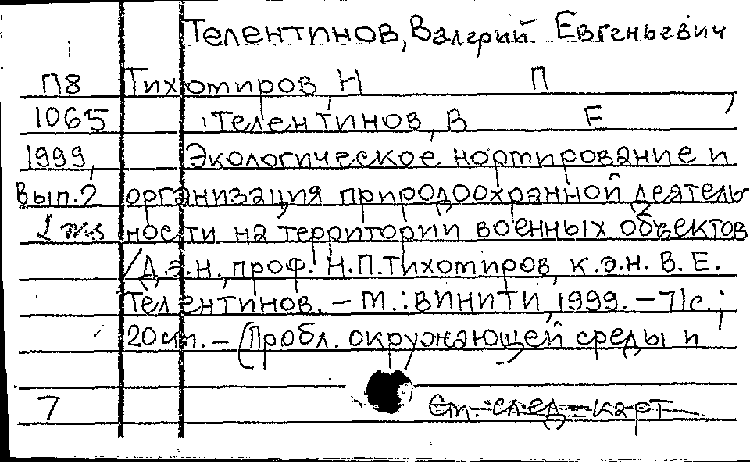 Телентинов, Валерий Евгеньевич
П8 Тихомиров, Н П ,
1065 Телентинов, В Е
1999, Экологическое нормирование и
Вып.2 организация природоохранной деятель
2 экз ности на территории военных объектов
/Д.э.н., проф. Н.П.Тихомиров, к.э.н. В.Е.
Телентинов. – М.: ВИНИТИ, 1999. – 71с.;
20см. – (Пробл. окружающей среды и
7 См. след. карт